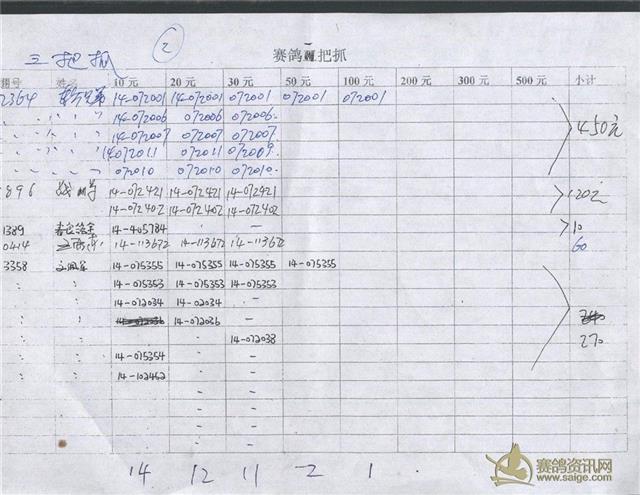 三把抓 2 赛鸽 把抓
翮号 姓名 10 元 20 元 30 元 50 元 100 元 200 元 300 元 500 元 小计
2364 14-072001 14-072001 072001 072001 072001
14-072006 072006 072006. 450元
14-072007 072007 072007.
14072011 072011 072009.
072010 072010 072010.
896 14-072421 14-072421 14-072421 120元
14-072402 14-072402 14-072402
1389 14-405784 - 10
0414 14-113672 14-113672 14-113672 60
3358 14-075355 14-075355 14-075355 14-075355
14-075353 14-075353 14-075353
14-072034 14-02034 -
14-072036 - 240
14-072038 270
14-075354 -
14-102462 -
14 12 11 2 1
赛鸽资讯网
www.saige.com